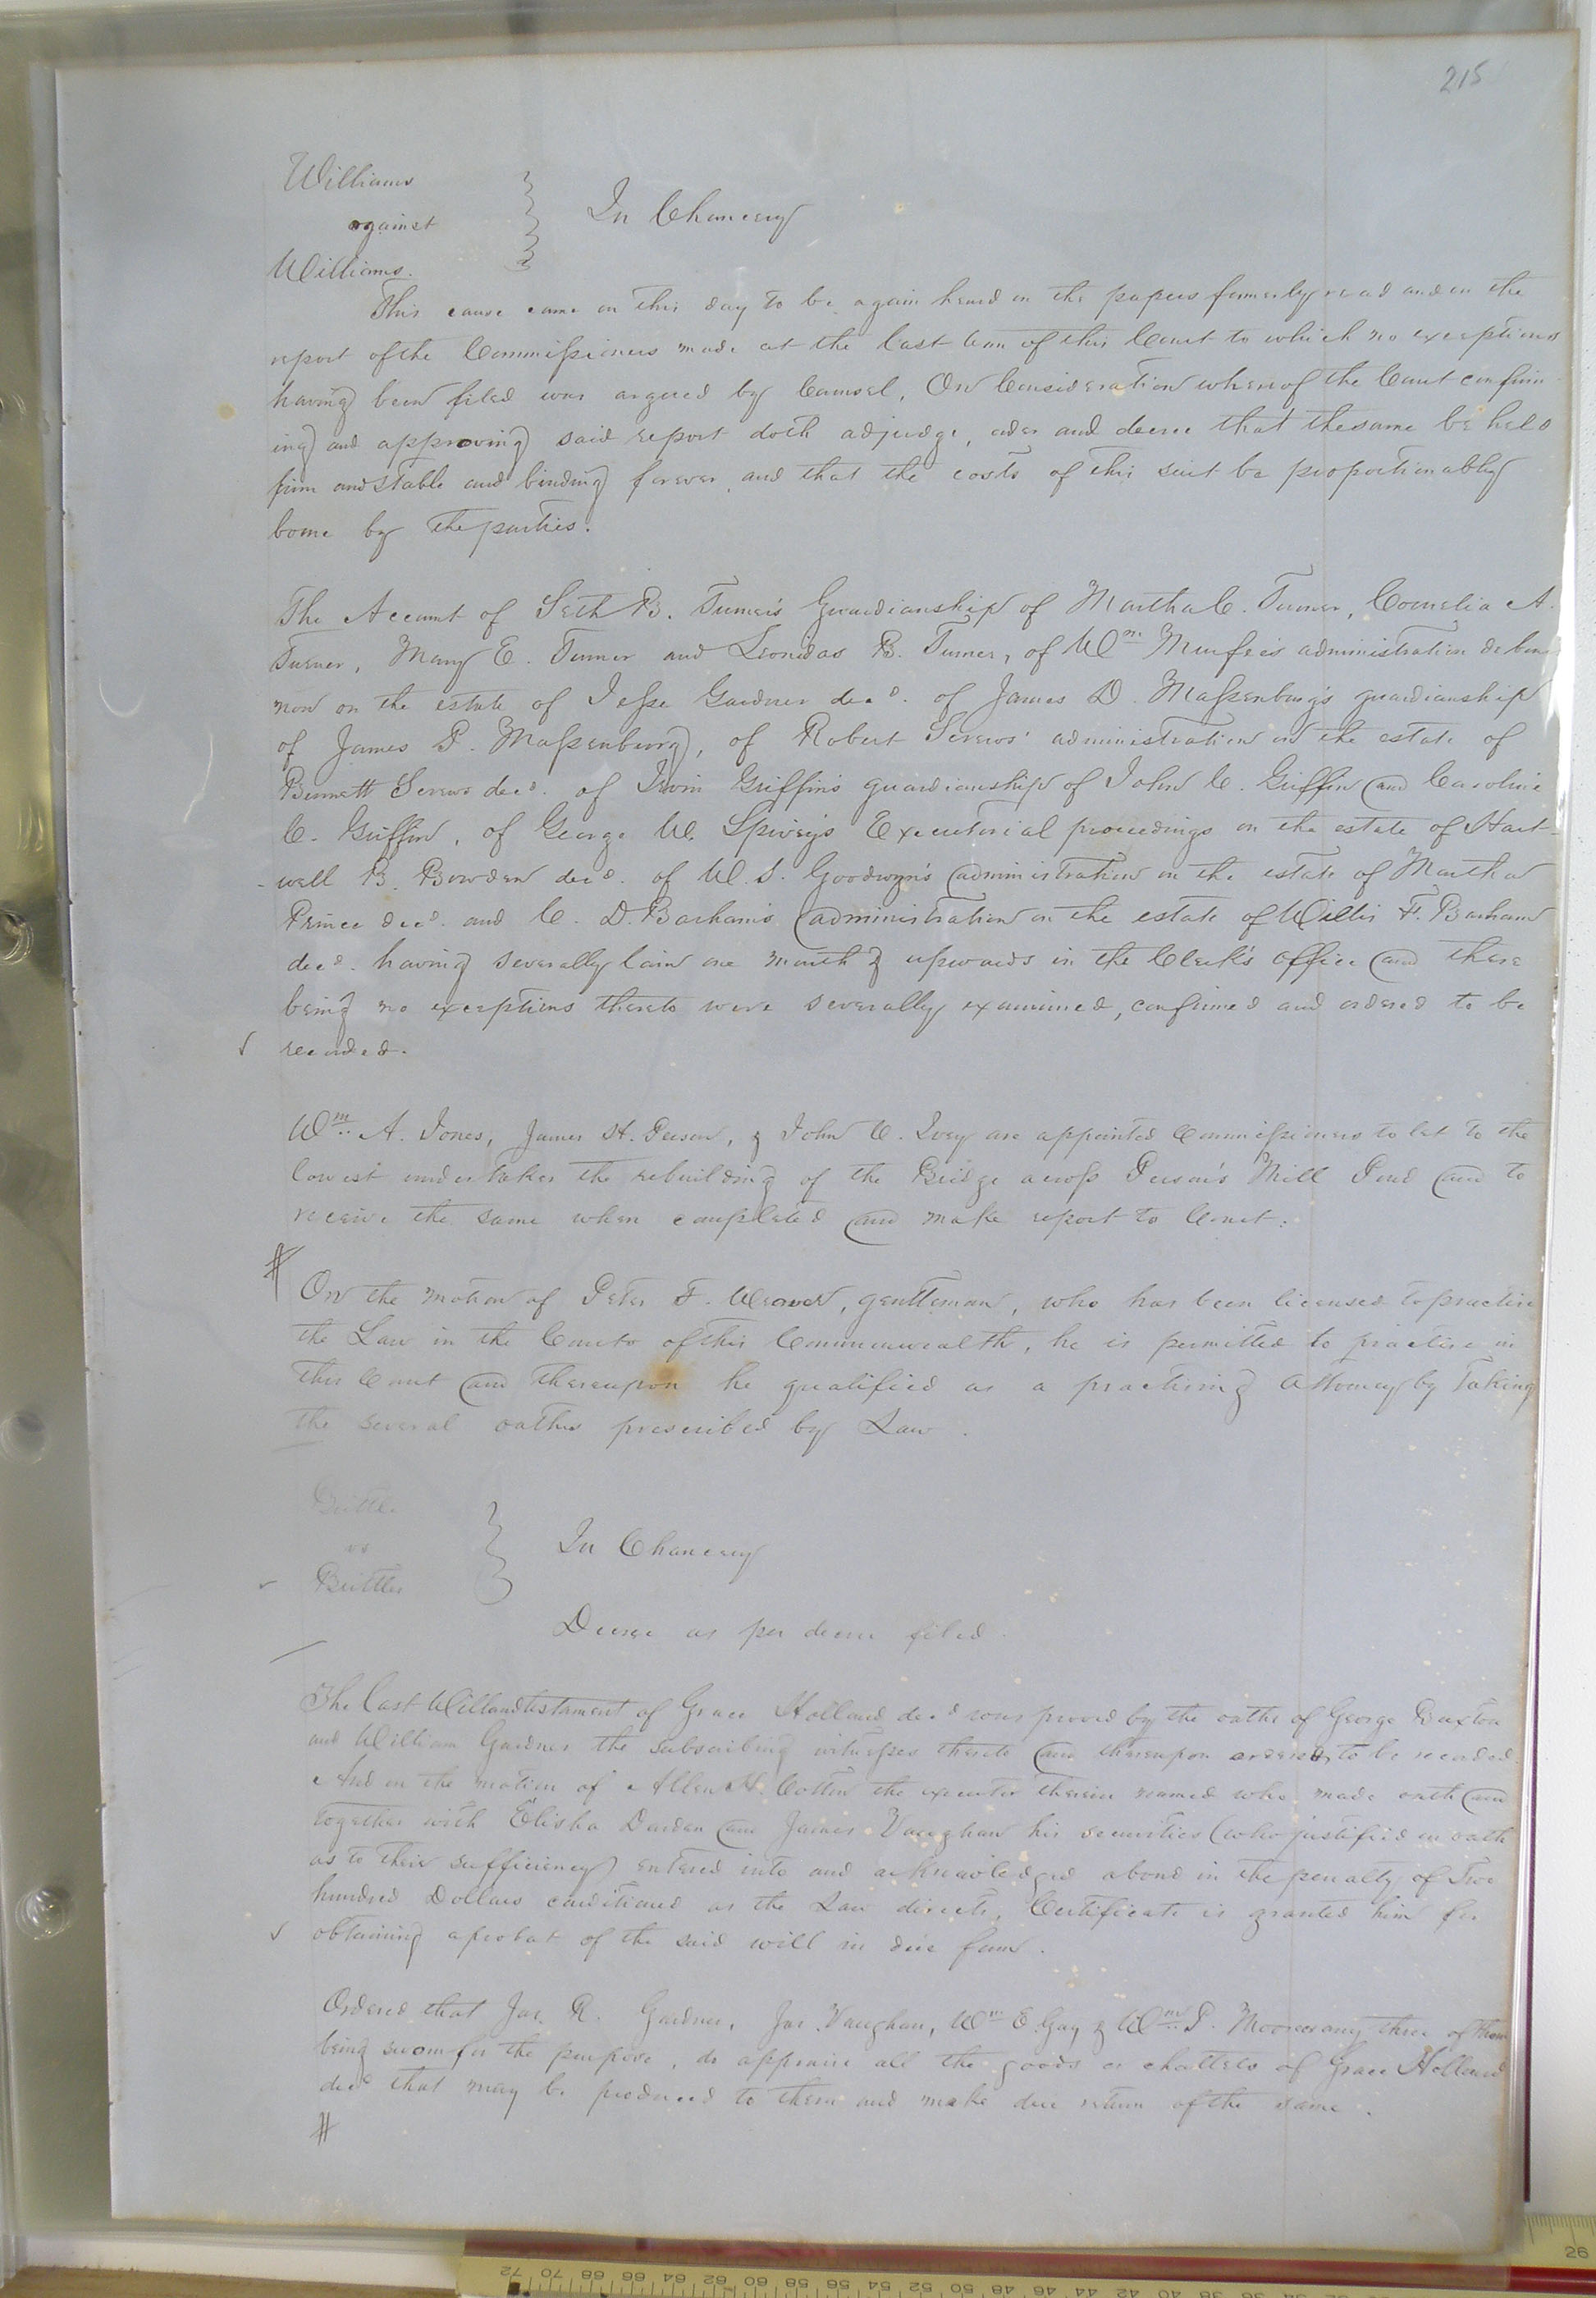 215
Williams
against
Williams.
In Chancery
This cause came on this day to be again heard on the papers formerly read and on the
report of the Commissioners made at the last term of this Court to which no exceptions
having been filed was argued by Counsel, On Consideration whereof the Court confirm
ing and approving said report doth adjudge, order and decree that the same be held
firm and stable and binding forever, and that the costs of this suit be proportionably
borne by the parties.
The Account of Seth B. Turner's Guardianship of Martha C. Turner, Cornelia A.
Turner, Mary E. Turner and Leonidas B. Turner, of Wm Murfee's administration de bonis
non on the estate of Jesse Gardner decd. of James D. Massenburg's guardianship
of James P. Massenburg, of Robert Screws' administration on the estate of
Bennett Screws decd. of Irvin Griffin's guardianship of John C. Griffin and Caroline
C. Griffin, of George W. Spivey's Executorial proceedings on the estate of Hart-
-well B. Bowden decd. of W. S. Goodwyn's administration on the estate of Martha
Prince decd. and C. D. Barham's administration on the estate of Willis F. Barham
decd. having severally lain one month & upwards in the Clerk's office and there
being no exceptions thereto were severally examined, confirmed and ordered to be
recorded.
Wm A. Jones, James H. Person, & John C. Ivey are appointed Commissioners to let to the
lowest undertaker the rebuilding of the Bridge across Person's Mill Pond and to
receive the same when completed and make report to Court.
#
On the motion of Peter F. Weaver, gentleman, who has been licensed to practice
the Law in the Courts of this Commonwealth, he is permitted to practice in
this Court and thereupon he qualified as a practising Attorney by taking
the several oaths prescribed by Law.
Brittle
vs
Brittle
In Chancery
Decree as per decree filed.
The last Will and testament of Grace Holland decd was proved by the oaths of George Buxton
and William Gardner the subscribing witnesses thereto and thereupon ordered to be recorded.
And on the motion of Allen H. Cotton the executor therein named who made oath and
together with Elisha Darden and James Vaughan his securities (who justified on oath
as to their sufficiency) entered into and acknowledged a bond in the penalty of Two
hundred Dollars conditioned as the Law directs, Certificate is granted him for
obtaining a probat of the said will in due form.
Ordered that Jas. R. Gardner, Jas. Vaughan, Wm E. Gay & Wm P. Moore or any three of them
being sworn for the purpose, do appraise all the goods or chattels of Grace Holland
decd that may be produced to them and make due return of the same.
#